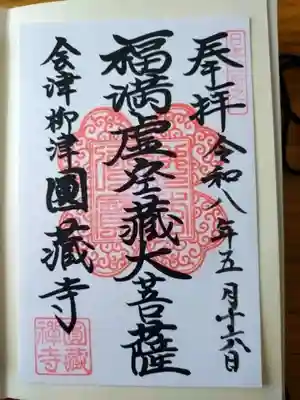 奉拝 令和八年五月十六日
福満虚空藏大菩薩
会津柳津 圓藏寺
圓藏禅寺